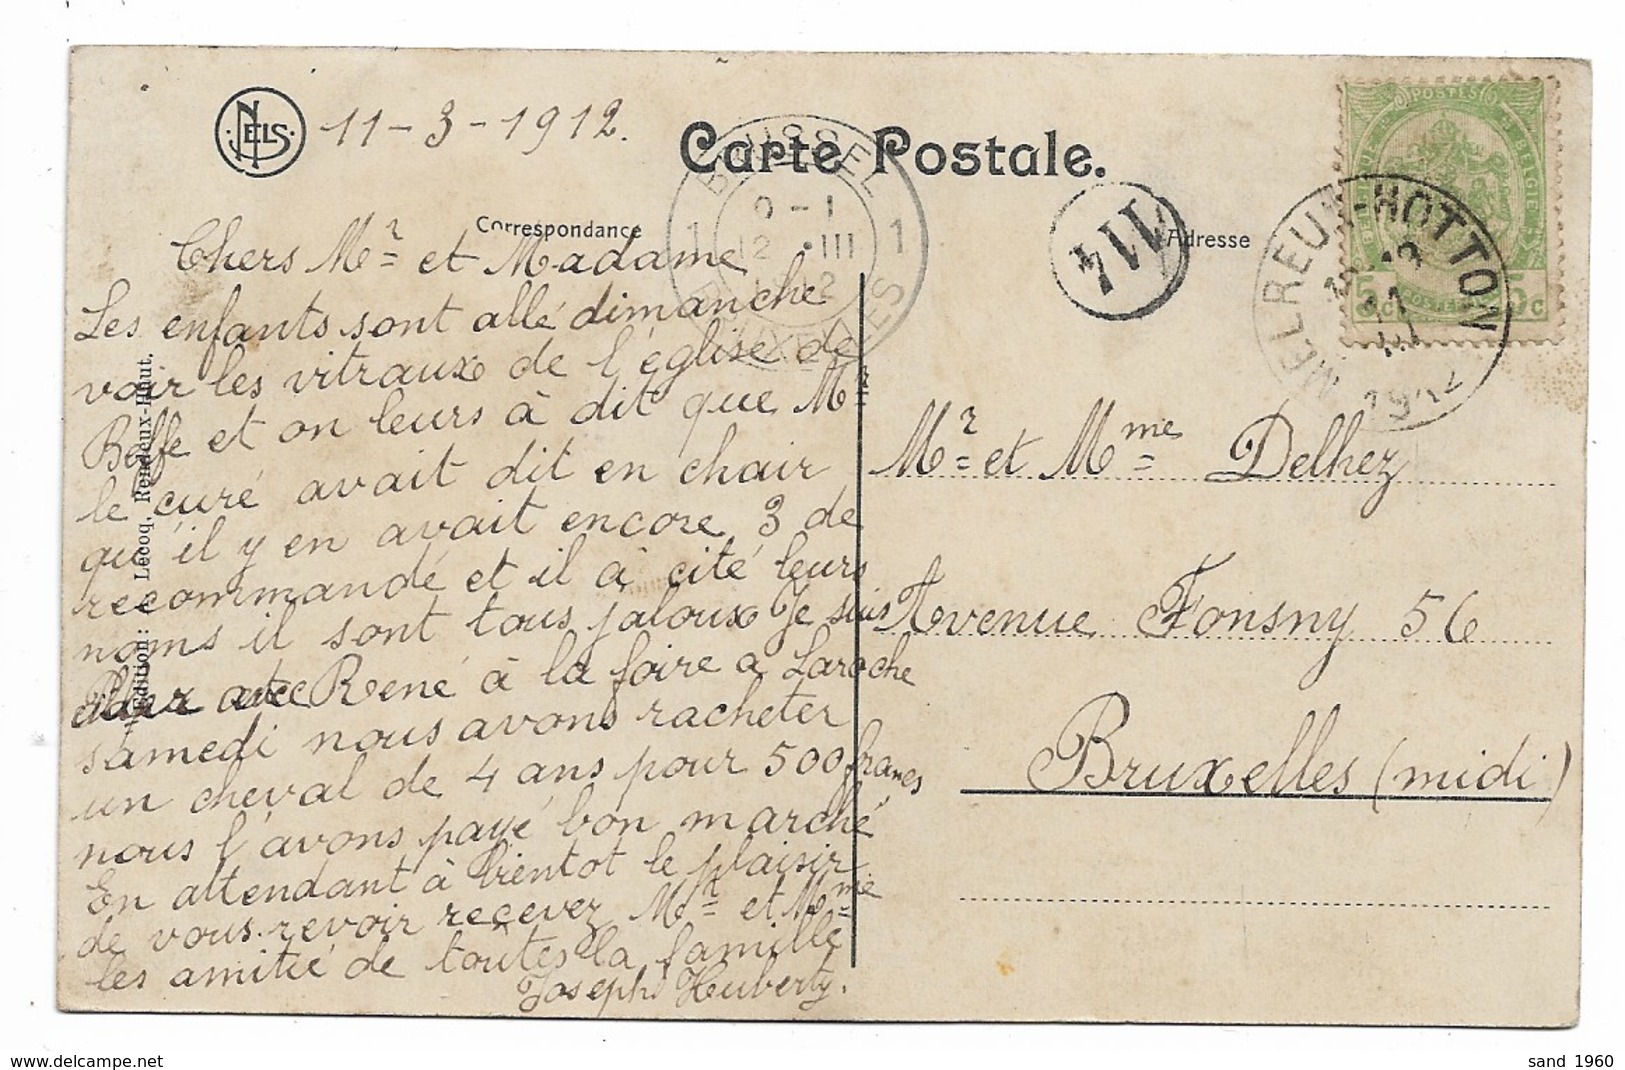 NELS
11-3-1912.
Carte Postale.
Correspondance
Adresse
BRUSSEL
1 12 III 1
1912
BRUXELLES
114
POSTES
5c POSTERIJEN 5c
MELREUX-HOTTON
11
III
1912
Chers Mr et Madame
Les enfants sont allé dimanche
voir les vitraux de l'église de
Beffe et on leurs à dit que Mr
le curé avait dit en chair
qu'il y en avait encore 3 de
recommandé et il à cité leurs
noms il sont tous jaloux Je suis
aller avec René à la foire a Laroche
samedi nous avons racheter
un cheval de 4 ans pour 500 francs
nous l'avons payé bon marché
En attendant à bientot le plaisir
de vous revoir recevez Mr et Mme
les amitié de toutes la famille
Joseph Huberty.
Mr et Mme Delhez
Avenue Fonsny 56
Bruxelles (midi)
Edition: Lecoq, Rendeux-Haut.
www.delcampe.net
sand_1960